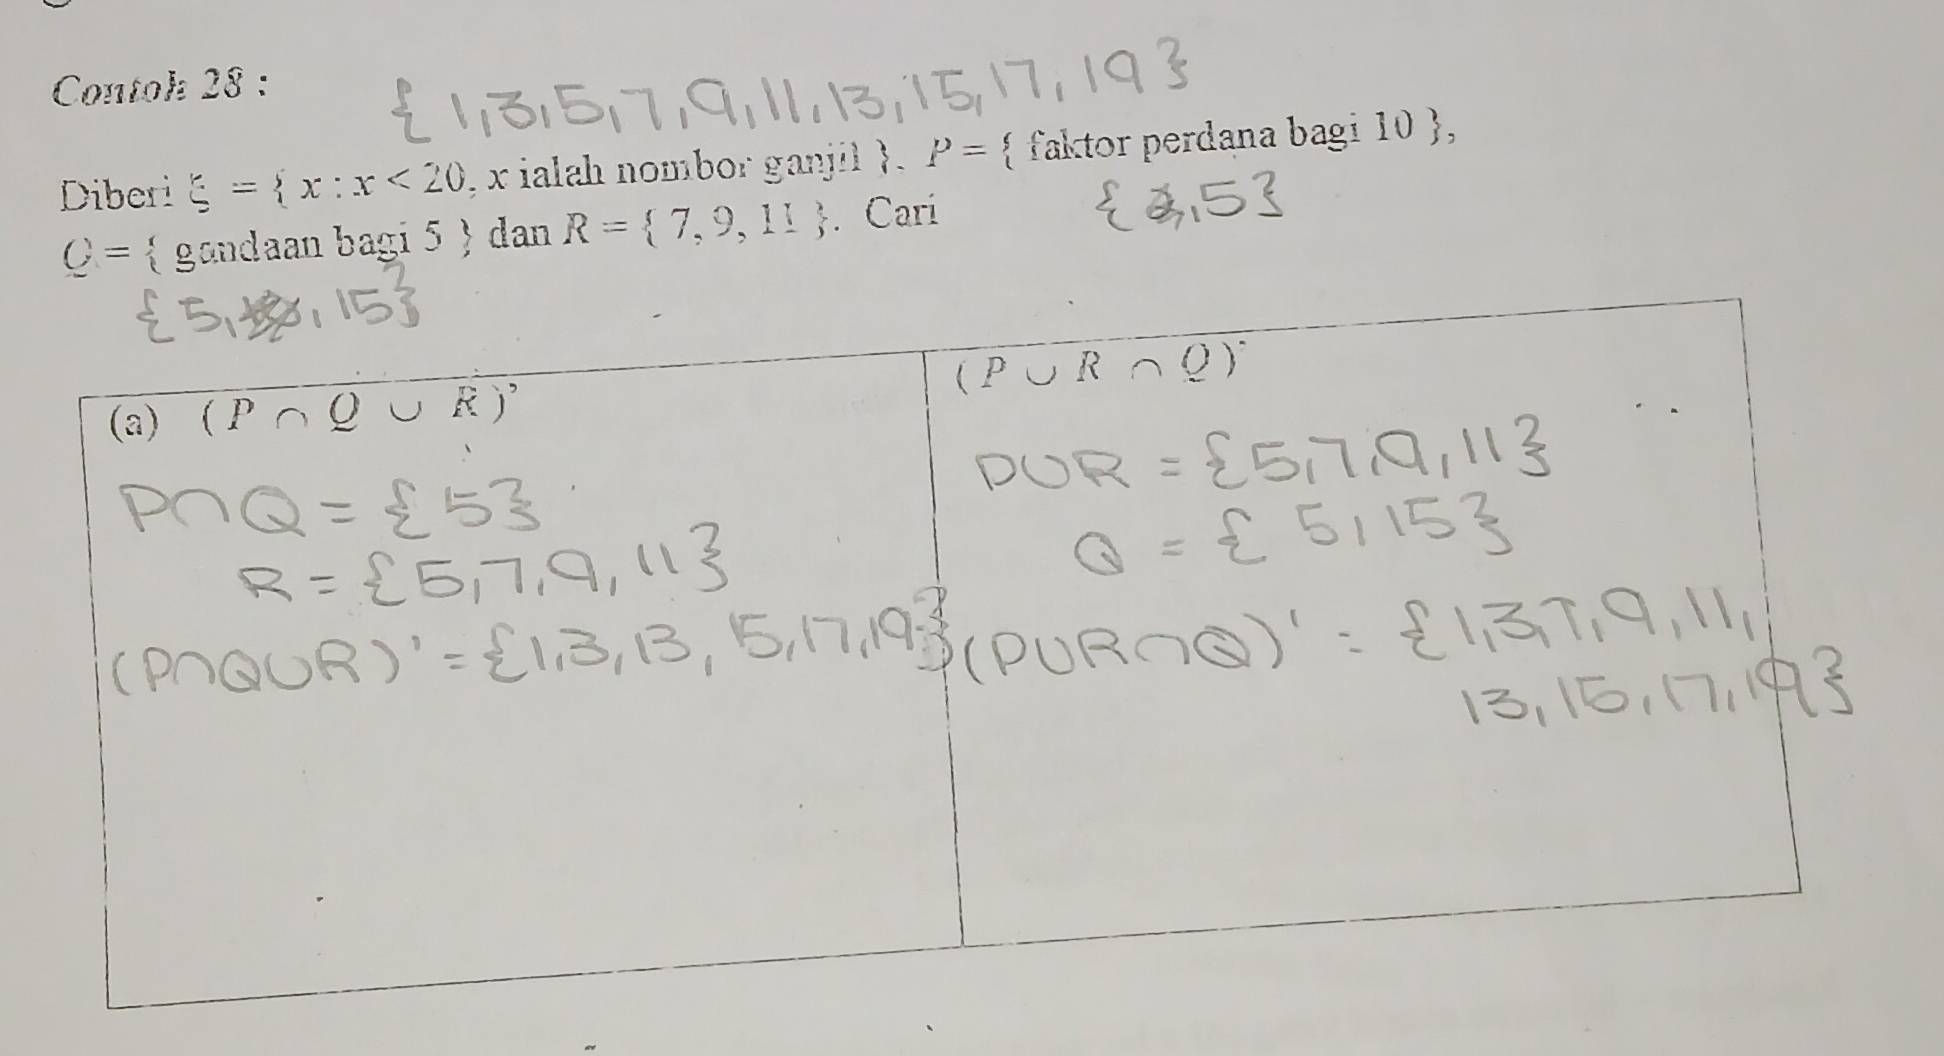 Contoh 28 :
{ 1,3,5,7,9,11,13,15,17,19 }
Diberi ξ = { x : x < 20, x ialah nombor ganjil }. P = { faktor perdana bagi 10 },
{ 2,5 }
Q = { gandaan bagi 5 } dan R = { 7, 9, 11 }. Cari
{ 5, , 15 }
(a) (P ∩ Q ∪ R)'
P∩Q = { 5 }
R = { 5,7,9,11 }
(P∩Q∪R)' = { 1,3,13,15,17,19 }
(P ∪ R ∩ Q)'
P∪R = { 5,7,9,11 }
Q = { 5,15 }
(P∪R∩Q)' = { 1,3,7,9,11,
13,15,17,19 }